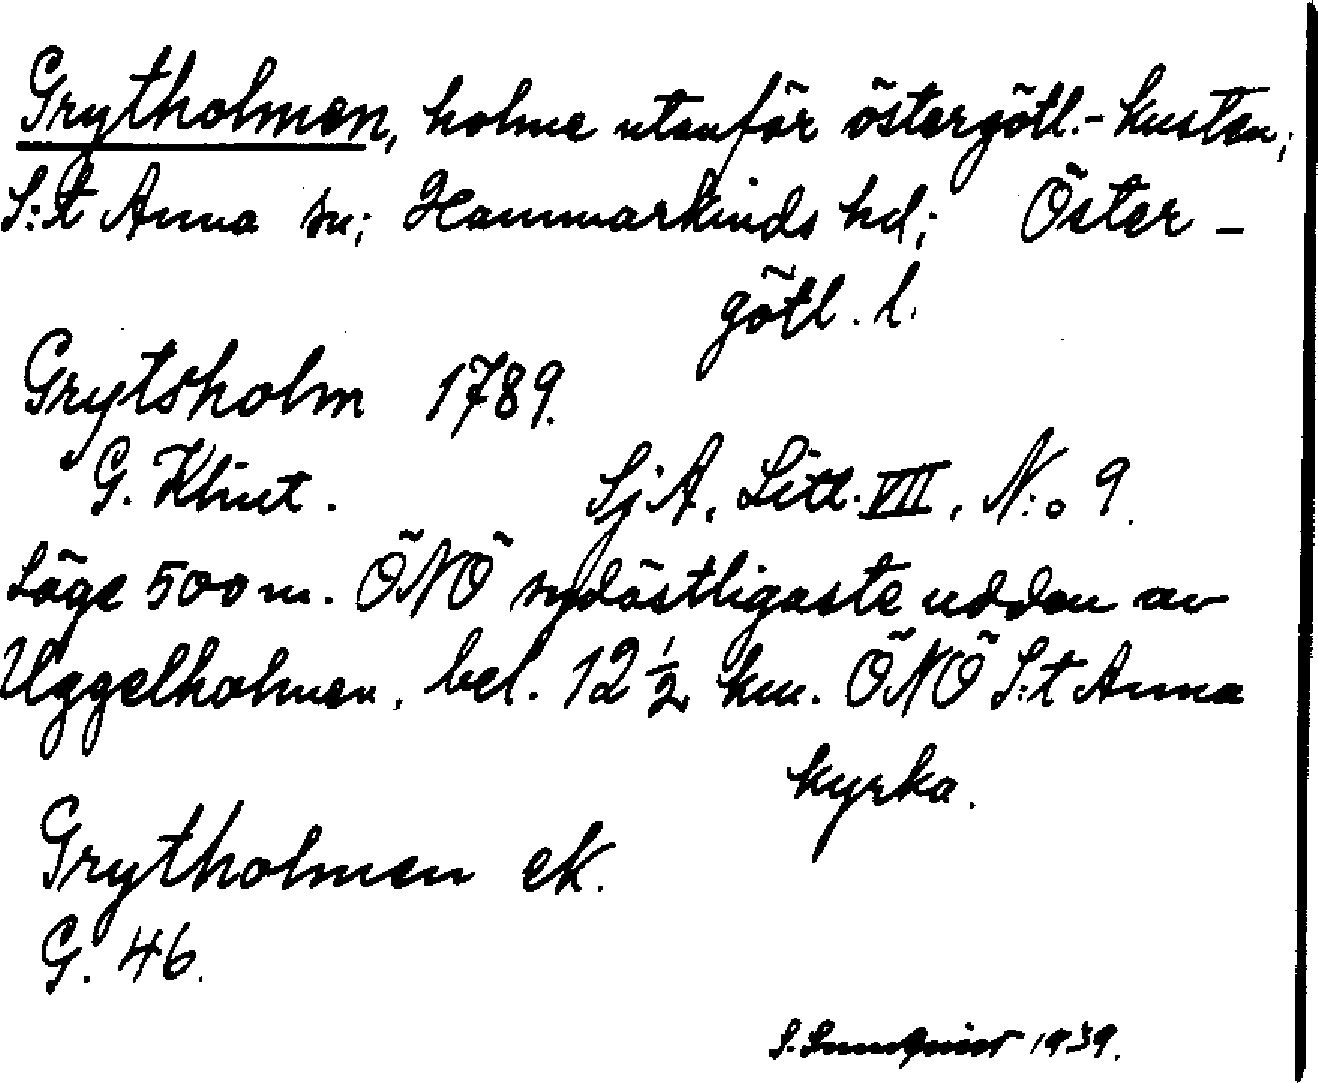 Grytholmen, holme utanför östergötl.-kusten;
S:t Anna sn; Hammarkinds hd; Öster-
götl. l.
Grytsholm 1789.
G. Klint. SjA, Litt. VII, N:o 9.
Läge 500 m. ÖNÖ sydöstligaste udden av
Uggelholmen, bel. 12 1/2 km. ÖNÖ S:t Anna
kyrka.
Grytholmen ek.
G. 46.
S. Sundquist 1939.